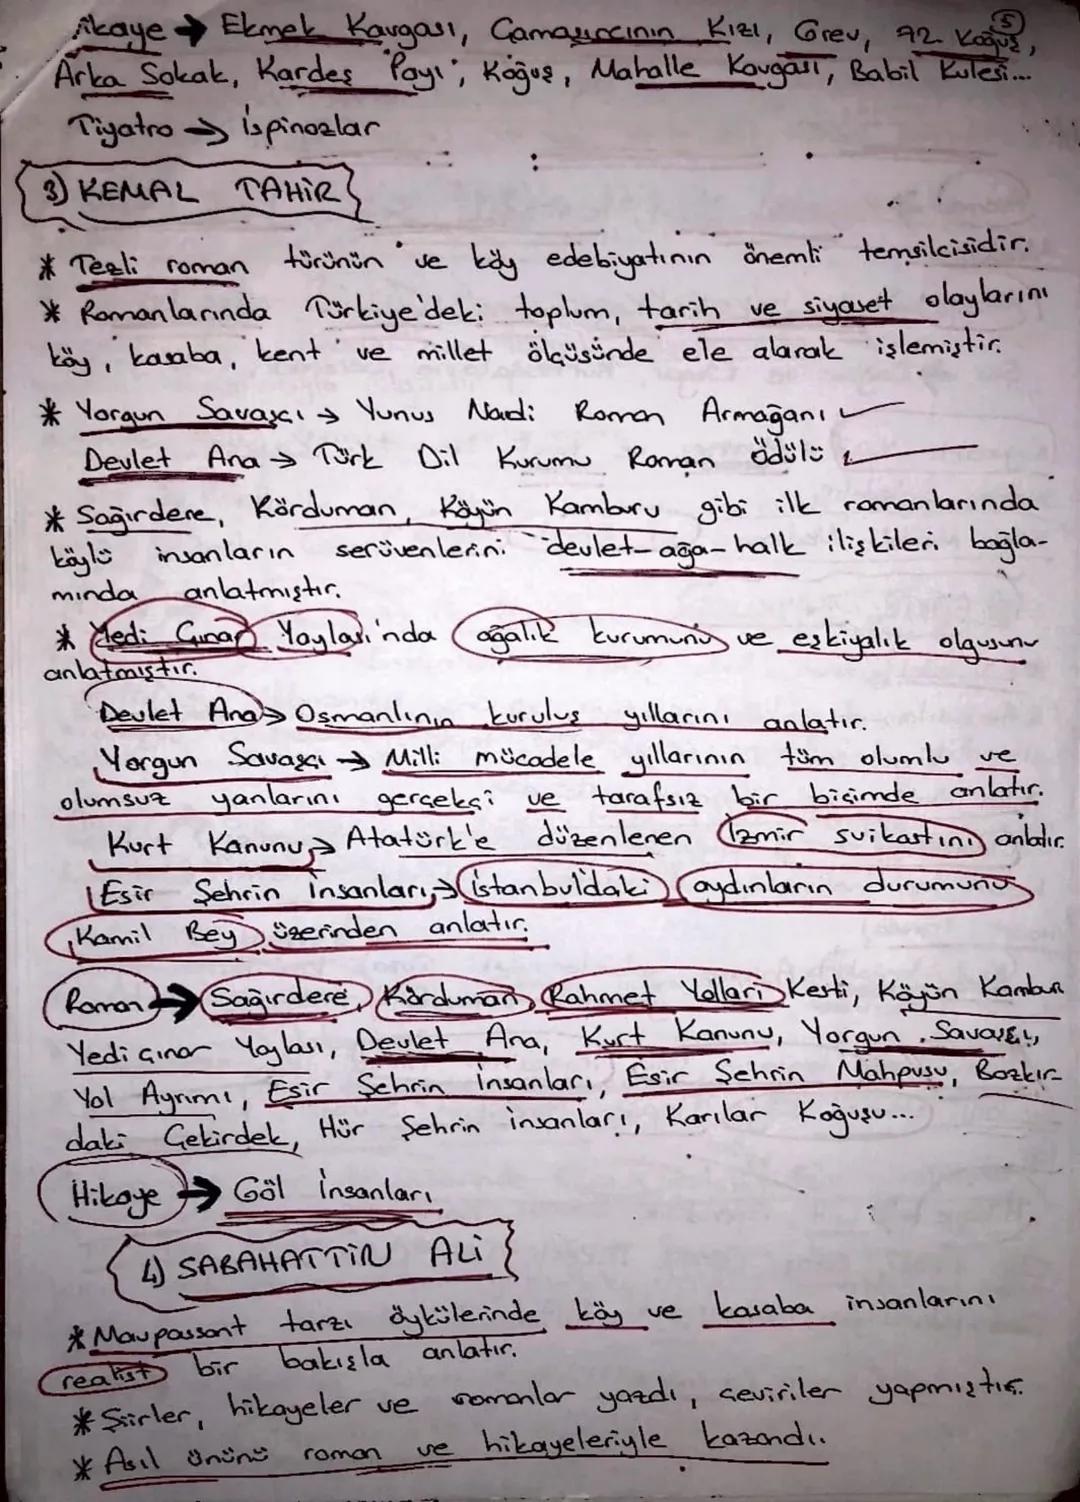 Hikaye → Ekmek Kavgası, Çamaşırcının Kızı, Grev, 72. Koğuş,
5
Arka Sokak, Kardeş Payı, Koğuş, Mahalle Kavgası, Babil Kulesi...
Tiyatro → İspinozlar
3) KEMAL TAHİR
* Tezli roman türünün ve köy edebiyatının önemli temsilcisidir.
* Romanlarında Türkiye'deki toplum, tarih ve siyaset olaylarını
köy, kasaba, kent ve millet ölçüsünde ele alarak işlemiştir.
* Yorgun Savaşçı → Yunus Nadi Roman Armağanı
Devlet Ana → Türk Dil Kurumu Roman Ödülü
* Sağırdere, Körduman, Köyün Kamburu gibi ilk romanlarında
köylü insanların serüvenlerini devlet-ağa-halk ilişkileri bağla-
mında anlatmıştır.
* Yedi Çınar Yaylası'nda ağalık kurumunu ve eşkiyalık olgusunu
anlatmıştır.
Devlet Ana → Osmanlının kuruluş yıllarını anlatır.
Yorgun Savaşçı → Milli mücadele yıllarının tüm olumlu ve
olumsuz yanlarını gerçekçi ve tarafsız bir biçimde anlatır.
Kurt Kanunu → Atatürk'e düzenlenen İzmir suikastını anlatır.
Esir Şehrin İnsanları → İstanbul'daki aydınların durumunu
Kamil Bey üzerinden anlatır.
Roman → Sağırdere, Körduman, Rahmet Yolları Kesti, Köyün Kamburu
Yedi Çınar Yaylası, Devlet Ana, Kurt Kanunu, Yorgun Savaşçı,
Yol Ayrımı, Esir Şehrin İnsanları, Esir Şehrin Mahpusu, Bozkır-
daki Çekirdek, Hür Şehrin İnsanları, Karılar Koğuşu...
Hikaye → Göl İnsanları
4) SABAHATTİN ALİ
* Maupassant tarzı öykülerinde köy ve kasaba insanlarını
realist bir bakışla anlatır.
* Şiirler, hikayeler ve romanlar yazdı, çeviriler yapmıştır.
* Asıl ününü roman ve hikayeleriyle kazandı.